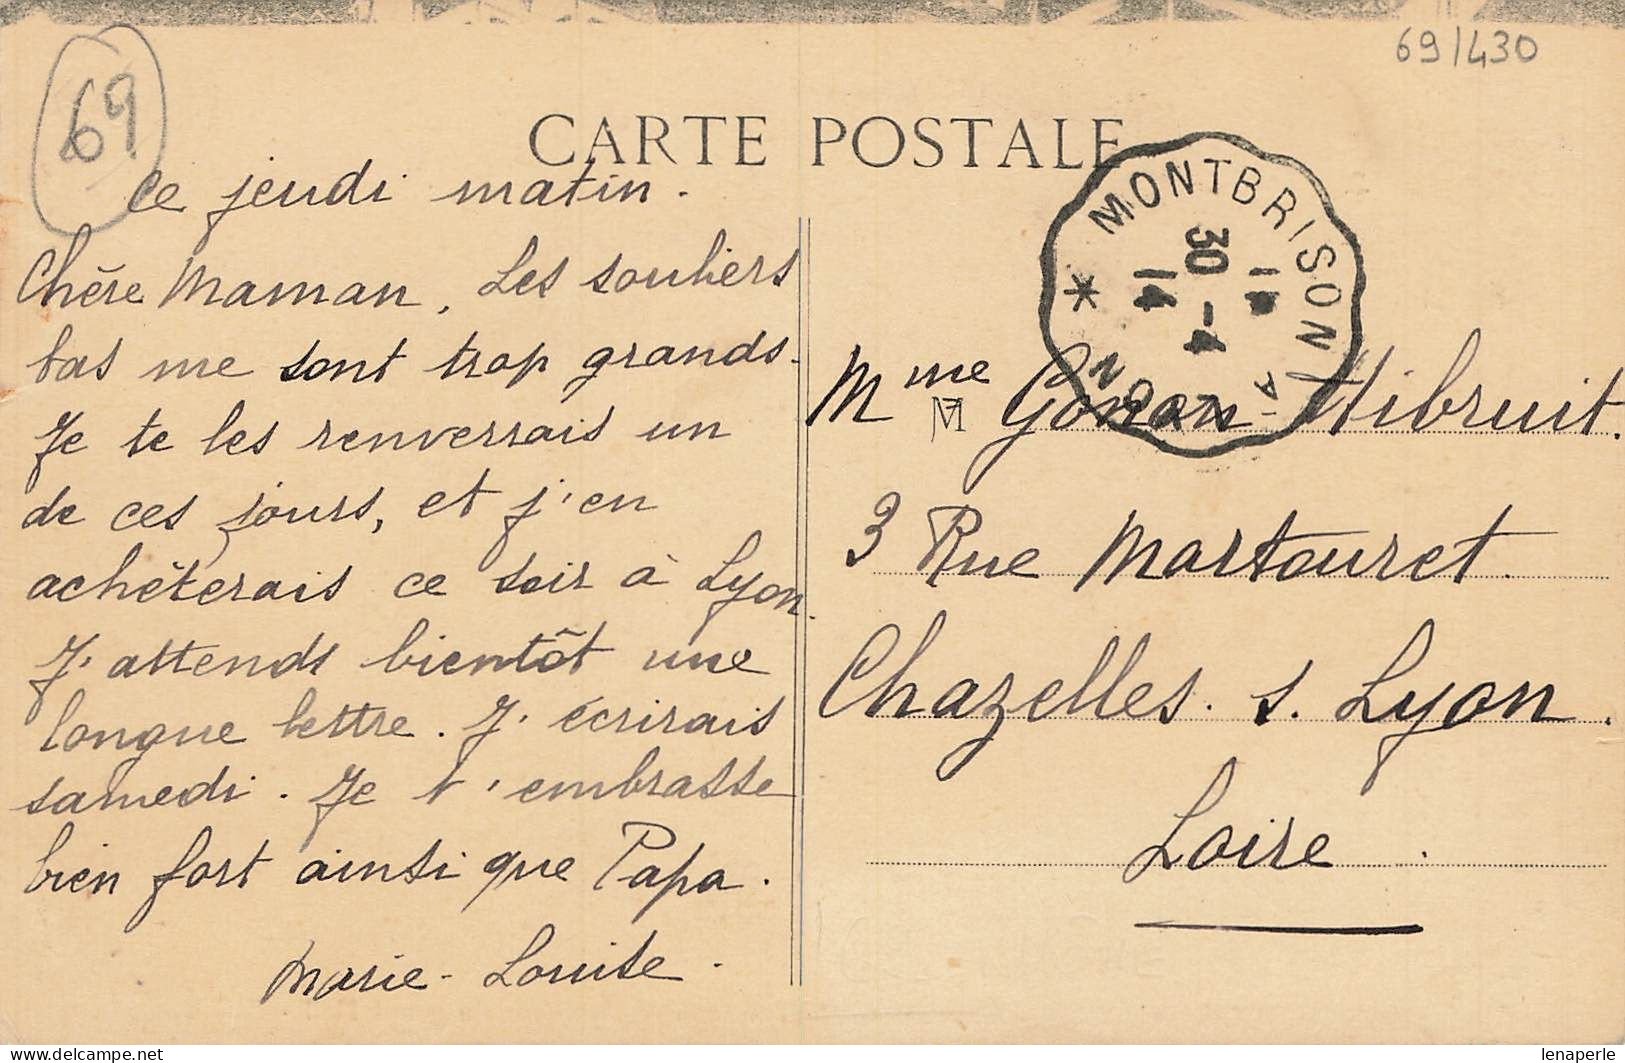 69/430
69
CARTE POSTALE
Ce jeudi matin.
Chère Maman, Les souliers
bas me sont trop grands.
Je te les renverrais un
de ces jours, et j'en
achèterais ce soir à Lyon.
J'attends bientôt une
longue lettre. J'écrirais
samedi. Je t'embrasse
bien fort ainsi que Papa.
Marie-Louise.
MONTBRISON A LYON
30 -4
14
Mme Gonon-Hibruit.
3 Rue Martouret.
Chazelles. s. Lyon.
Loire.
lenaperle